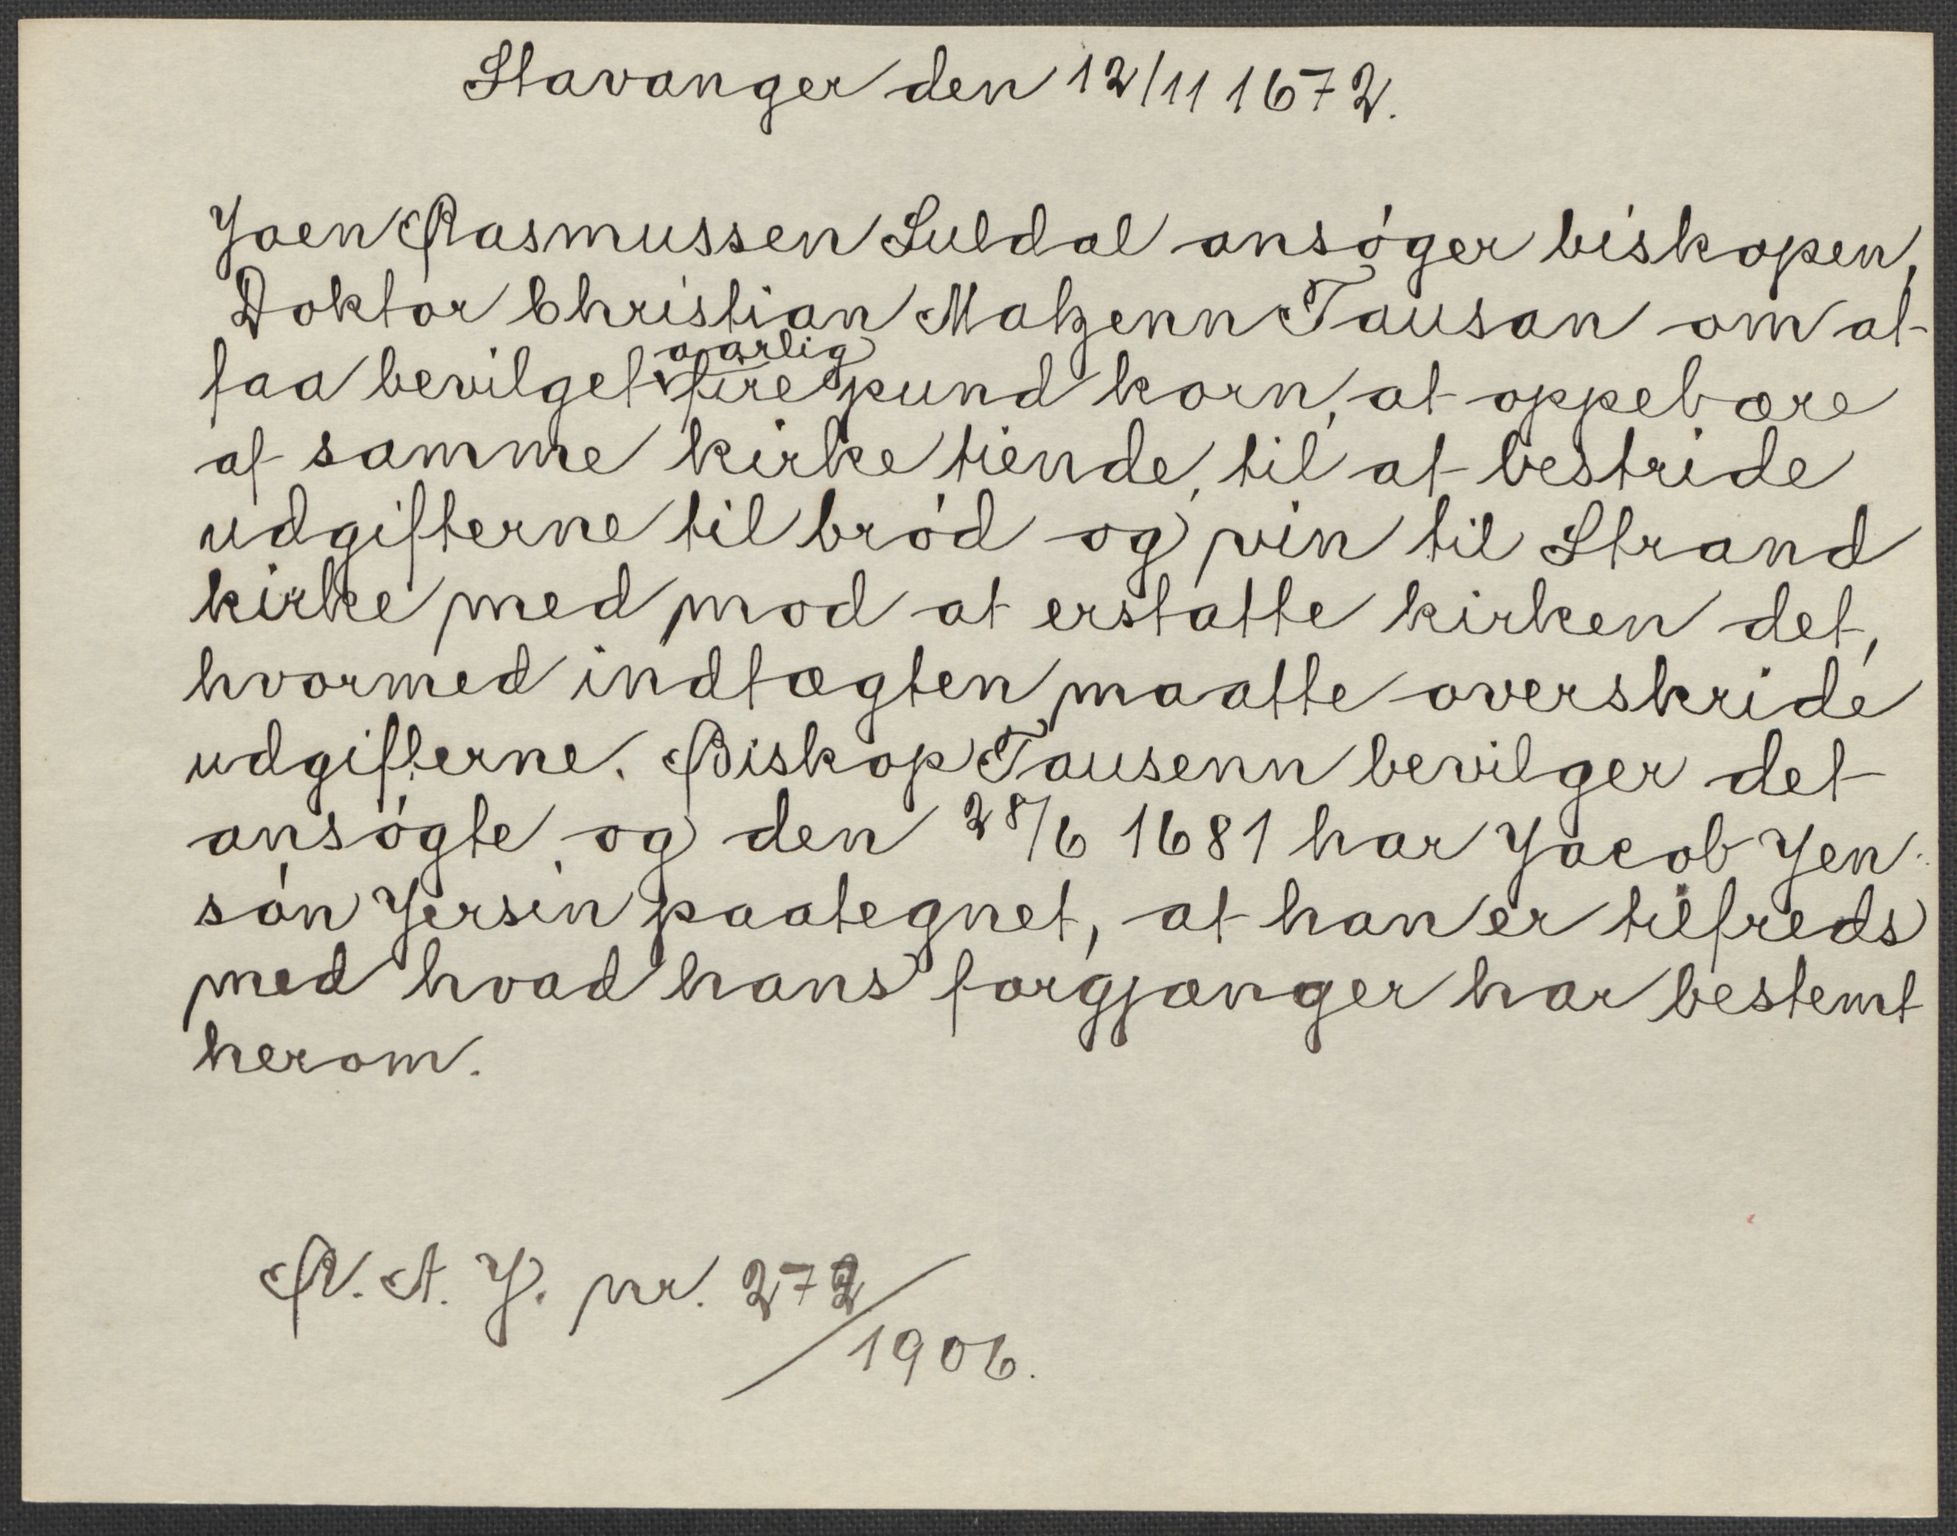 Stavanger den 12/11 1672.
Joen Rasmussen Suldal ansóger biskopen,
Doktor Christian Matzenn Tausan om at
faa bevilget aarlig fire pund korn, at oppebære
af samme kirke tiende, til at bestride
udgifterne til bród og vin til Strand
kirke med mod at erstatte kirken det,
hvormed indtægten maatte overskride
udgifterne. Biskop Tausenn bevilger det
ansógte, og den 28/6 1681 har Jacob Jen
són Jersin paategnet, at han er tilfreds
med hvad hans forgjænger har bestemt
herom.
R. A. J. nr. 272/1906.